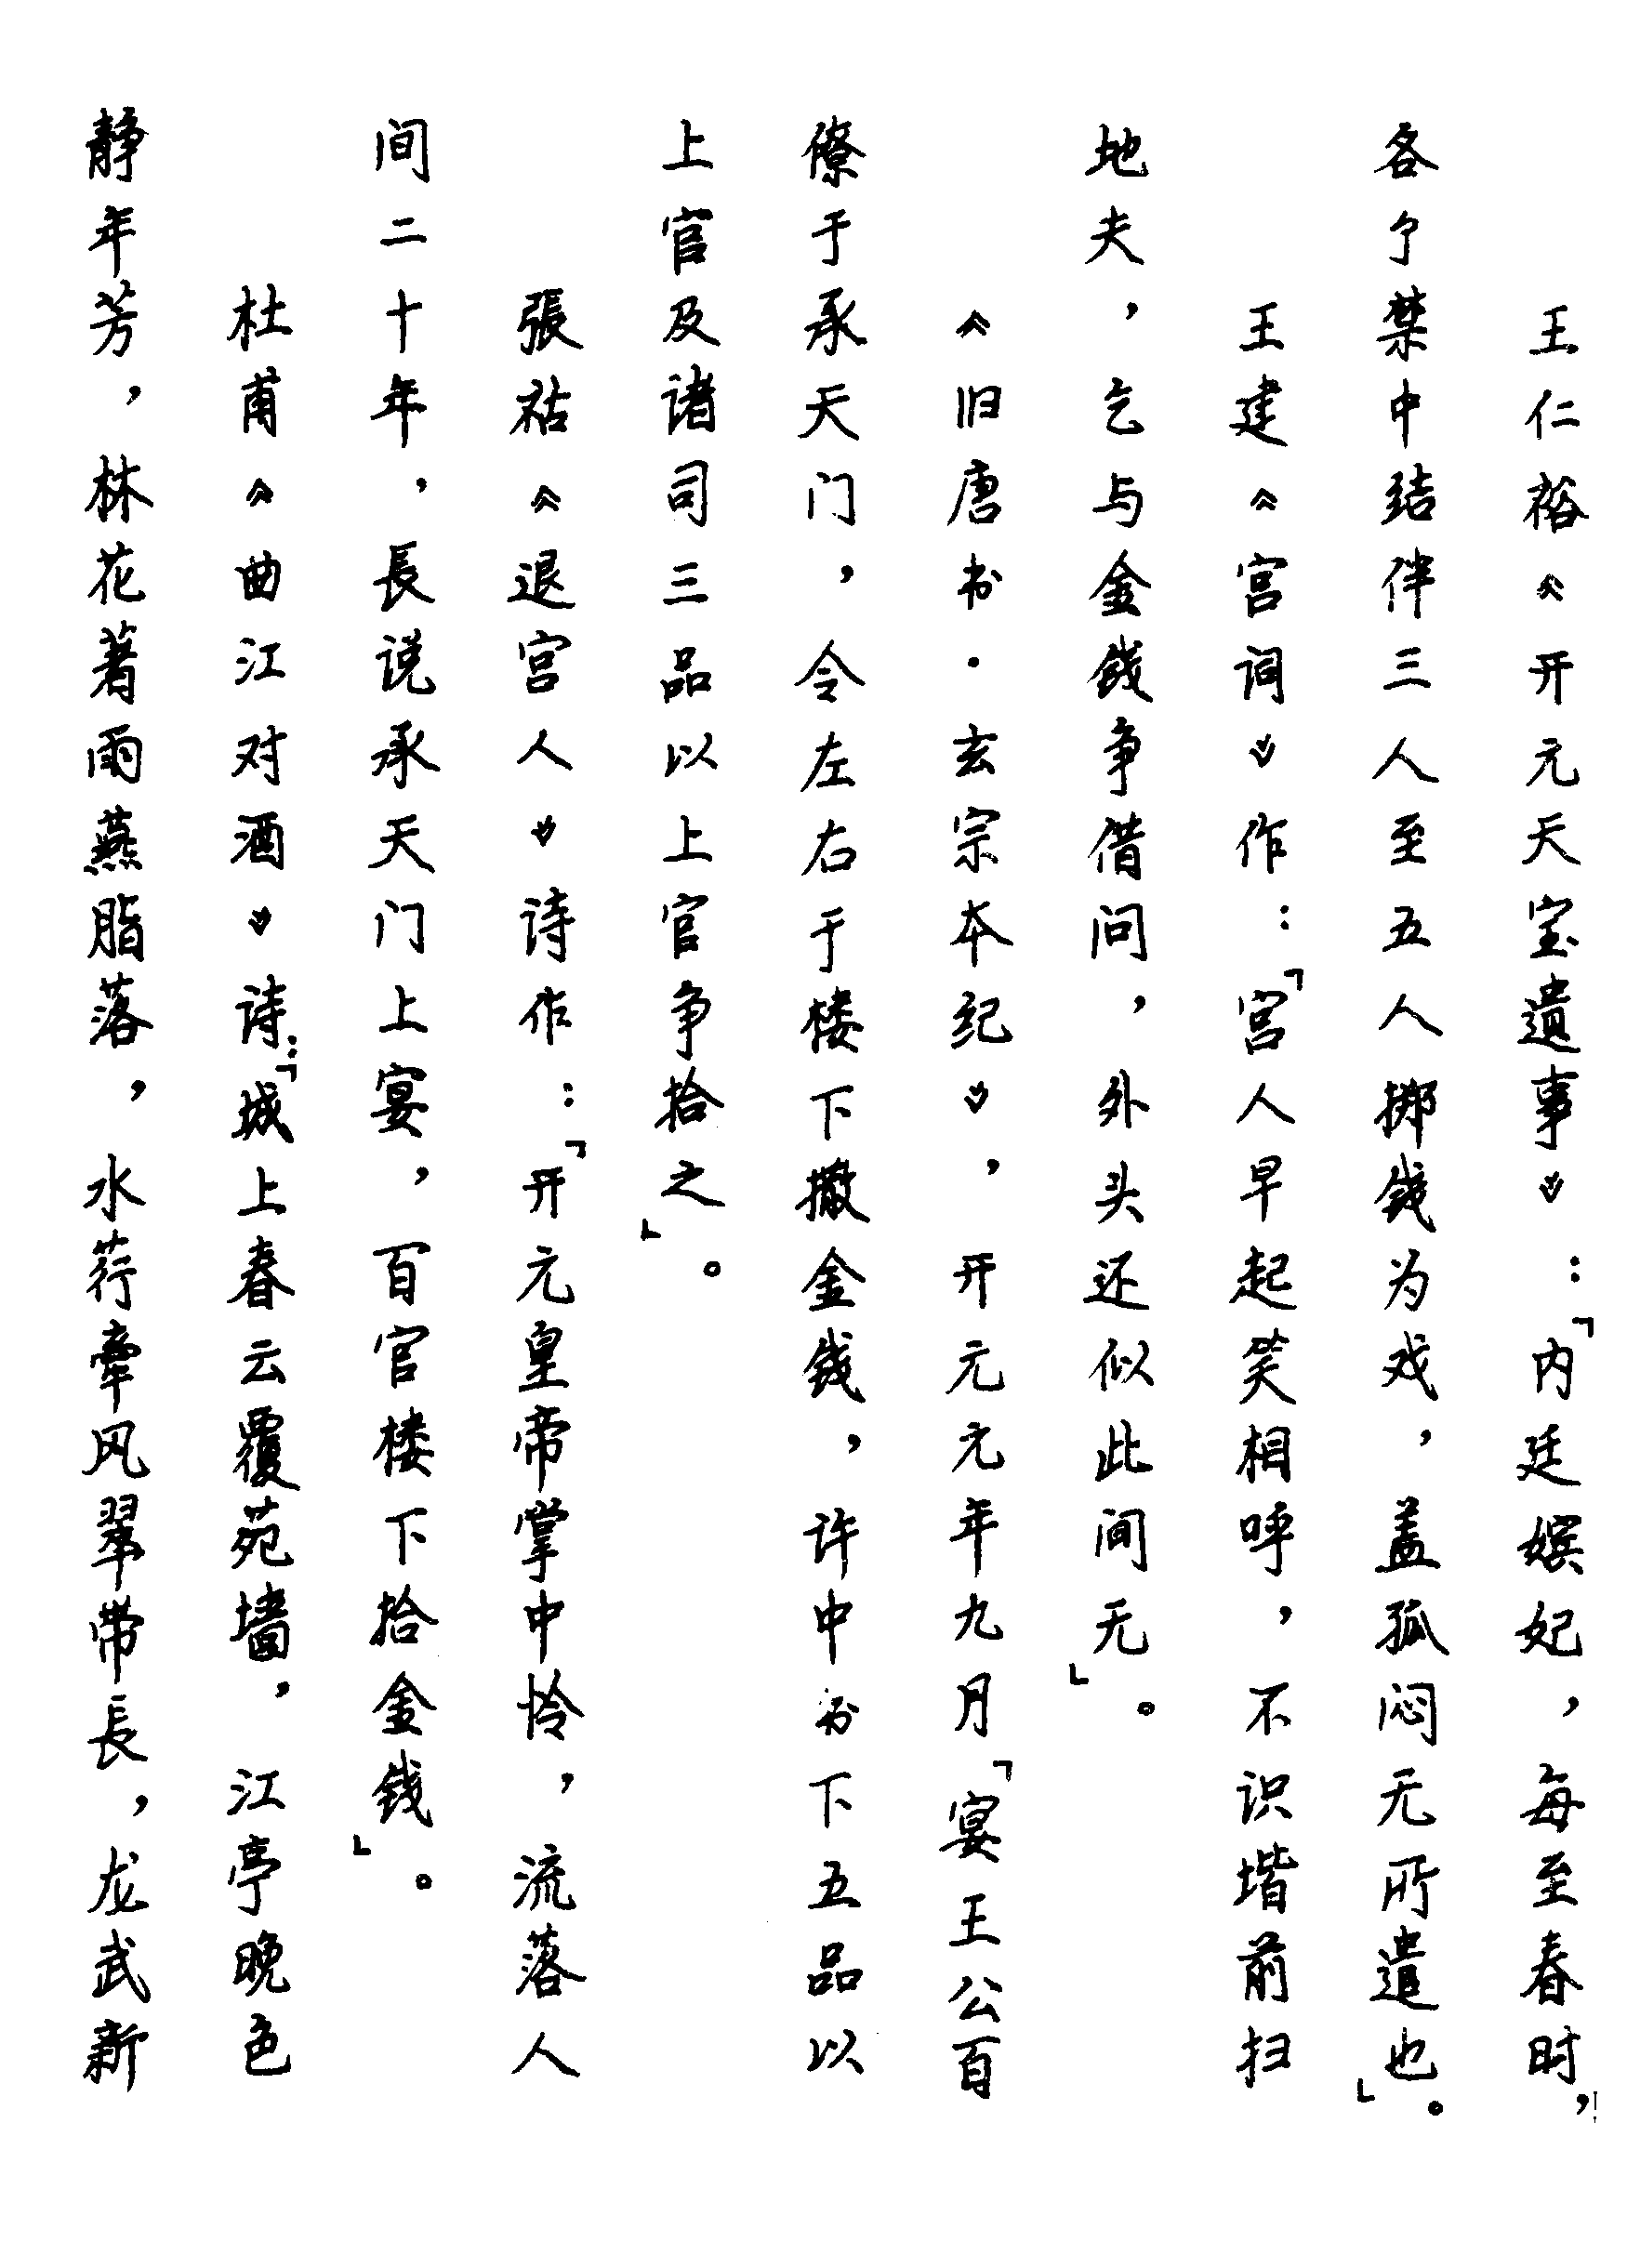 王仁裕《开元天宝遗事》:「内廷嫔妃，每至春时，
各于禁中结伴三人至五人掷钱为戏，盖孤闷无所遣也」。
王建《宫词》作:「宫人早起笑相呼，不识堦前扫
地夫，乞与金钱争借问，外头还似此间无」。
《旧唐书·玄宗本纪》，开元元年九月「宴王公百
僚于承天门，令左右于楼下撤金钱，许中书下五品以
上官及诸司三品以上官争拾之」。
張祜《退宫人》诗作:「开元皇帝掌中怜，流落人
间二十年，長说承天门上宴，百官楼下拾金钱」。
杜甫《曲江对酒》诗:「城上春云覆苑墙，江亭晚色
静年芳，林花著雨燕脂落，水荇牵风翠带長，龙武新